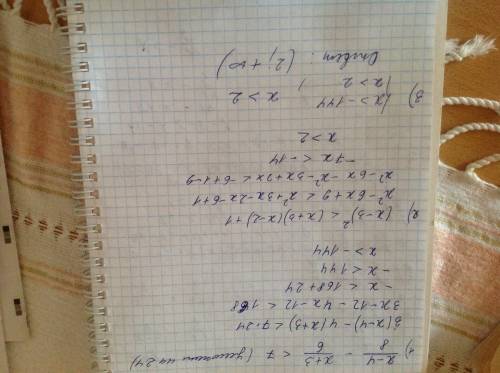 1) x-4/8 - x+3/6 < 7 (умножим на 24)
3(x-4) - 4(x+3) < 7·24
3x-12-4x-12 < 168
-x < 168+24
-x < 144
x > -144
2) (x-3)² < (x+3)(x-2)+1
x²-6x+9 < x²+3x-2x-6+1
x²-6x-x²-3x+2x < -6+1-9
-7x < -14
x > 2
3) {x > -144
{x > 2, x > 2
Ответ: (2; +∞)